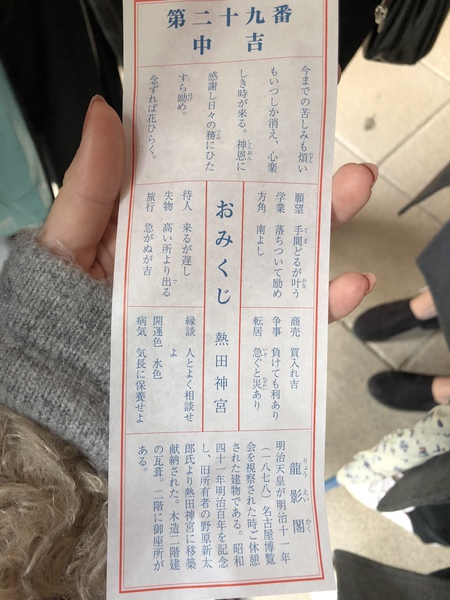 第二十九番
中吉
今までの苦しみも煩い
もいつしか消え、心楽
しき時が来る。神恩に
感謝し日々の務にひた
すら励め。
念ずれば花ひらく。
願望 手間どるが叶う
学業 落ちついて励め
方角 南よし
商売 買入れ吉
争事 負けても利あり
転居 急ぐと災あり
おみくじ 熱田神宮
待人 来るが遅し
失物 高い所より出る
旅行 急がぬが吉
縁談 人とよく相談せ
よ
開運色 水色
病気 気長に保養せよ
龍影閣
明治天皇が明治十一年
(一八七八)名古屋博覧
会を視察された時ご休憩
された建物である。昭和
四十一年明治百年を記念
し、旧所有者の野原新太
郎氏より熱田神宮に移築
献納された。木造二階建
の瓦葺。二階に御座所が
ある。